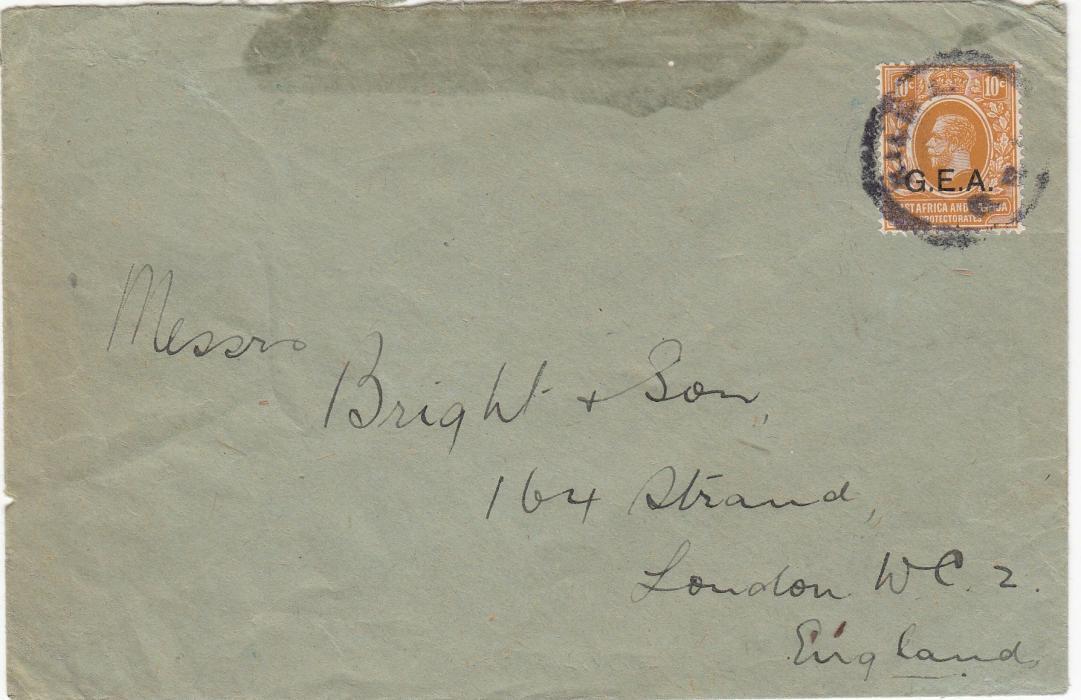 10c 10c
G.E.A.
EAST AFRICA AND UGANDA
PROTECTORATES
Messrs
Bright & Son,
164 Strand,
London W.C. 2.
England